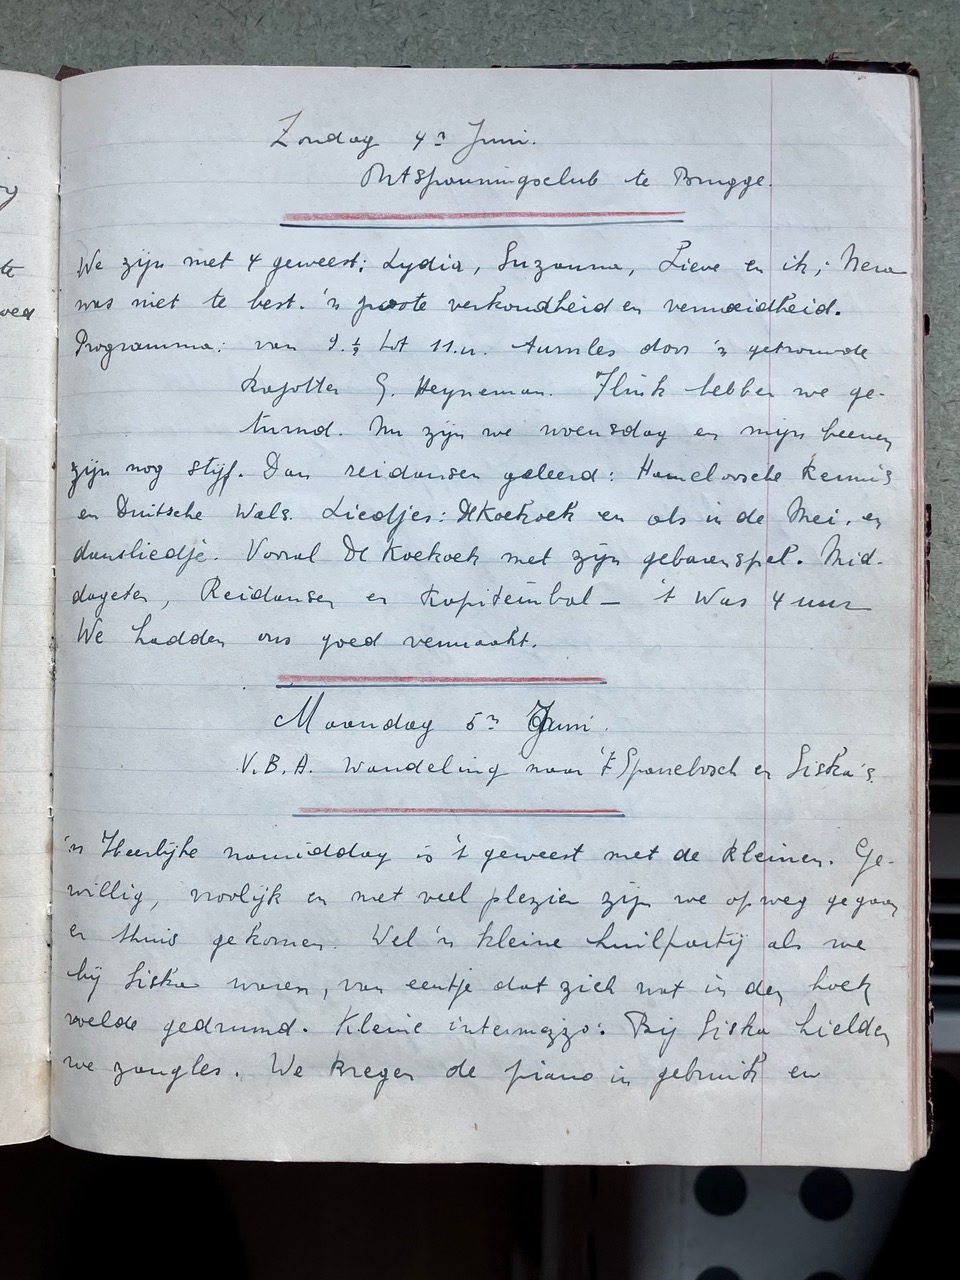 Zondag 4n Juni.
Ontspanningsclub te Brugge.
We zijn met 4 geweest; Lydia, Suzanna, Lieve en ik; Nera
was niet te best. 'n groote verkoudheid en vermoeidheid.
Programma: van 9.½ tot 11.u. turnles door 'n getrouwde
Kajotter G. Heyneman. Flink hebben we ge-
turnd. Nu zijn we woensdag en mijn beenen
zijn nog stijf. Dan reidansen geleerd: Hamelvosche Kermis
en Duitsche Wals. Liedjes: De Koekoek en als in de Mei. en
dansliedje. Vooral De Koekoek met zijn gebarenspel. Mid-
dageten, Reidansen en Kapiteinbal – 't Was 4 uur
We hadden ons goed vermaakt.
Maandag 5n Juni.
V.B.A. Wandeling naar 't Spanebosch en Siska's.
'n Heerlijke namiddag is 't geweest met de kleinen. Ge-
willig, vroolijk en met veel plezier zijn we op weg gegaan
en thuis gekomen. Wel 'n kleine huilpartij als we
bij Siska waren, van eentje dat zich nat in den hoek
voelde gedrumd. Kleine intermezzo: Bij Siska hielden
we zangles. We kregen de piano in gebruik en